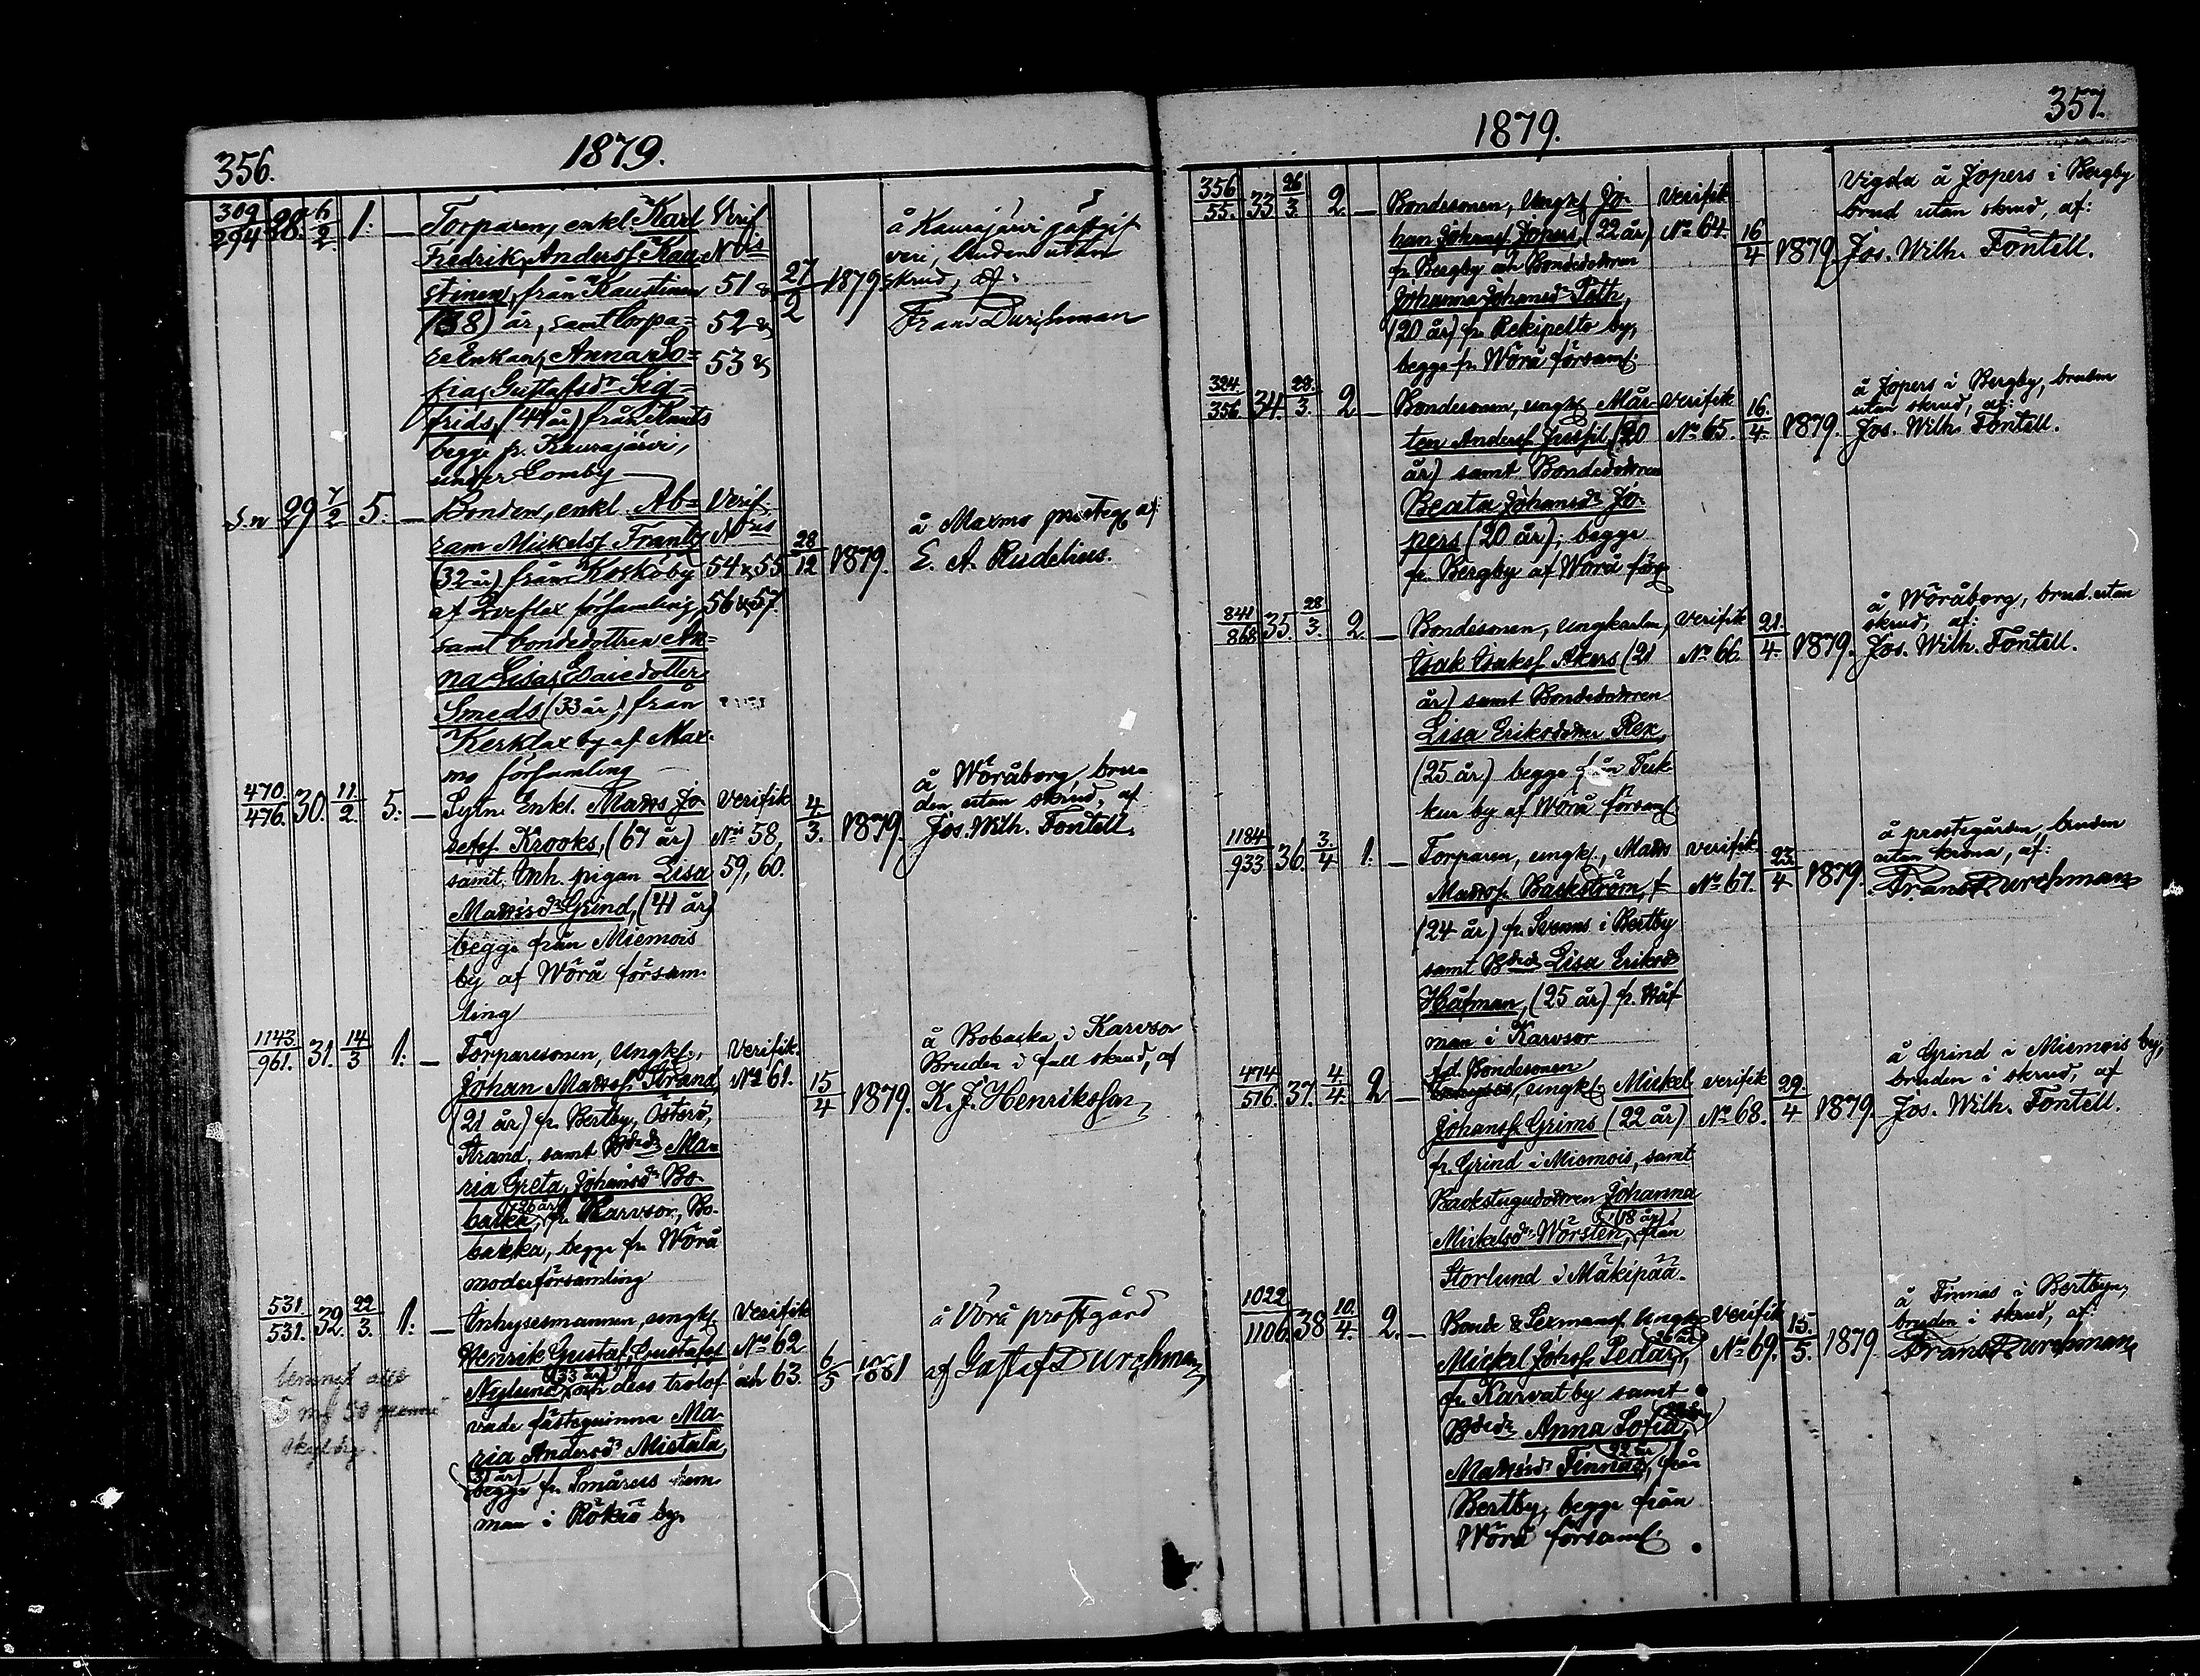 356.
1879.
309/294 28. 6/2 1. — Torparen, enkl. Karl Verif
Fredrik Andersf. Kau- Nris
stinen, från Kaustinen 51 &
(38) år, samt torpa- 52 &
re Enkan, Anna So- 53 &
fia Gustafsdr Sig-
frids, (44 år) från
begge fr. Kaurajärvi,
under Lomby
27/2 1879
å Kaurajärvi gästgif
veri, bruden utan
skrud, af:
Frans Durchman
29 7/2 5. — Bonden, enkl. Ab- Verif.
ram Mickelsf. Frants Nris
(32 år) från Koskö by 54 & 55
af Qveflax församling 56 & 57.
samt bondedottren An-
na Lisa Esaiedotter
Smeds (33 år), från
Kerklax by af Max-
mo församling
28/12 1879.
å Maxmo prosteg. af:
E. A. Rudelius.
470./476. 30. 11/2. 5. — Sytn. Enkl. Matts Jo- Verifik
sefsf. Krooks, (67 år) Nris 58,
samt Inh. pigan Lisa 59, 60.
Mattsdr Grind, (41 år)
begge från Miemois
by af Wörå försam-
ling
4./3. 1879.
å Wöråborg, bru-
den utan skrud, af
Jos. Wilh. Fontell.
1143/961. 31. 14/3 1. — Torparesonen, Ungkl., Verifik.
Johan Mattsf. Strand, No 61.
(21 år) fr. Bertby, Österö,
Strand, samt Bdedr Ma-
ria Greta, Johansdr Bo-
backa, (26 år) fr. Karvsor, Bo-
backa, begge fr. Wörå
moderförsamling
15/4 1879.
å Bobacka i Karvsor
Bruden i full skrud, af
K. J. Henriksson
531./531. 32. 22/3. 1. — Inhysesmannen, ungkl. Verifik
Henrik Gustaf Gustafsf. No 62
Nylund (33 år) och dess trolof- och 63.
vade fästeqvinna Ma-
ria Andersdr Mietala,
(31 år) begge fr. Smårus hem-
man i Rökiö by.
6/5 1881
å Vörå prostgård
af Gustaf Durchman
50
357.
1879.
356/55. 33. 26/3. 2. — Bondesonen, Ungkl. Jo- Verifik
han Johansf. Jopers, (22 år) No 64.
fr. Bergby och Bondedottren
Johanna Johansdr Peth,
(20 år) fr. Rekipelto by,
begge fr. Wörå församl.
16/4 1879
Vigda å Jopers i Bergby
brud utan skrud, af:
Jos. Wilh. Fontell.
324./356. 34. 28./3. 2 — Bondesonen, ungkl. Mår- Verifik
ten Andersf. Jussil (20 No 65.
år) samt Bondedottren
Beata Johansdr Jo-
pers (20 år); begge
fr. Bergby af Wörå förs.
16./4. 1879.
å Jopers i Bergby, bruden
utan skrud, af:
Jos. Wilh. Fontell.
841/868. 35. 28/3. 2. — Bondesonen, ungkarlen, Verifik
Isak Isaksf. Akers (21 No 66.
år) samt Bondedottren
Lisa Eriksdotter Rex,
(25 år) begge från Tuk-
kur by af Wörå församl.
21./4. 1879.
å Wöråborg, brud utan
skrud, af:
Jos. Wilh. Fontell.
1184/933 36. 3./4 1. — Torparen, ungkl., Matts Verifik
Mattsf. Backström, f
(24 år) fr. Svenns i Bertby No 67.
samt Bdedr Lisa Eriksdr
Håfman, (25 år) fr. Håf-
man i Karvsor
23./4 1879.
å prostegården, bruden
utan krona, af:
Frans Durchman
474/576. 37. 4./4. 2 — f.d. Bondesonen
ungkl. Mickel Verifik
Johansf. Grims (22 år) No 68.
fr. Grind i Miemois, samt
Backstugudottren Johanna
Mickelsdr Wörsten, (18 år) från
Storlund i Mäkipää.
29./4 1879.
å Grind i Miemois by,
bruden i skrud, af
Jos. Wilh. Fontell.
1022/1106. 38 10./4. 2. — Bonde & Lexmansf. Ungkl. Verifik
Mickel Johsf. Pedar, (26 år) No 69.
fr. Karvat by samt
Bdedr Anna Sofia,
Mattsdr Finnäs, (22 år) från
Bertby, begge från
Wörå församl.
15./5. 1879
å Finnäs i Bertbyn,
bruden i skrud, af:
Frans Durchman